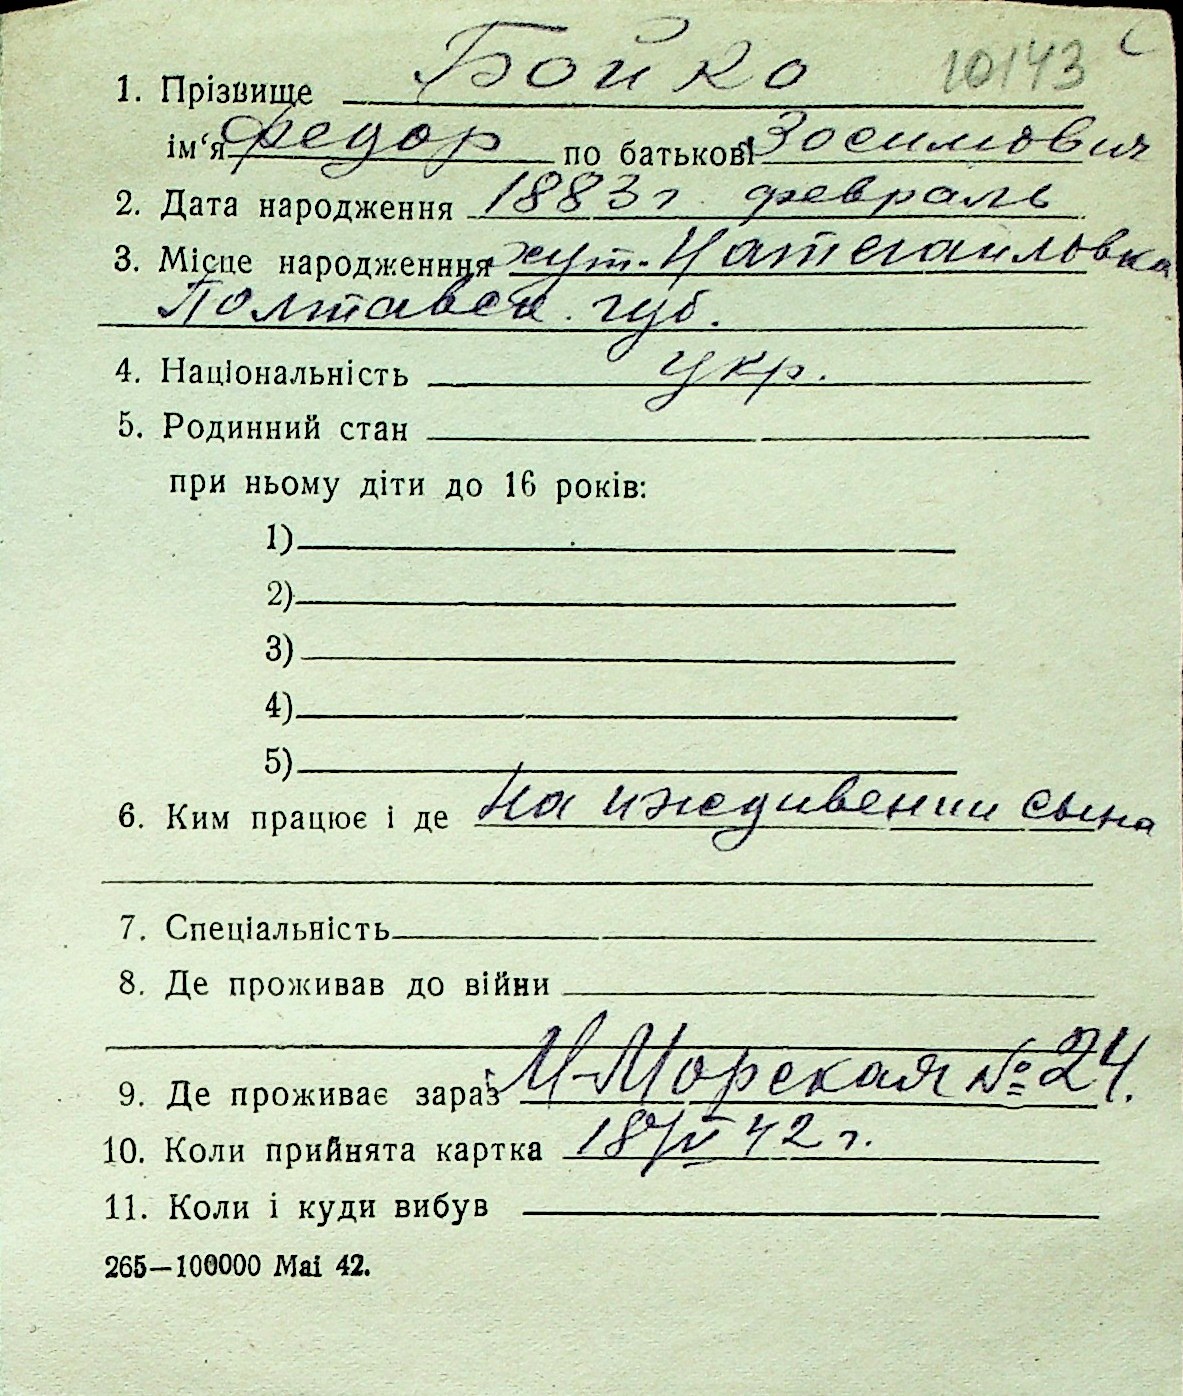 10143
1. Прізвище Бойко
ім‘я Федор по батькові Зосимович
2. Дата народження 1883 г. февраль
3. Місце народженння хут.
Полтавск. губ.
4. Національність укр.
5. Родинний стан
при ньому діти до 16 років:
1)
2)
3)
4)
5)
6. Ким працює і де на иждивении сына
7. Спеціальність
8. Де проживав до війни
9. Де проживає зараз М-Морская № 24.
10. Коли прийнята картка 42 г.
11. Коли і куди вибув
265—100000 Mai 42.